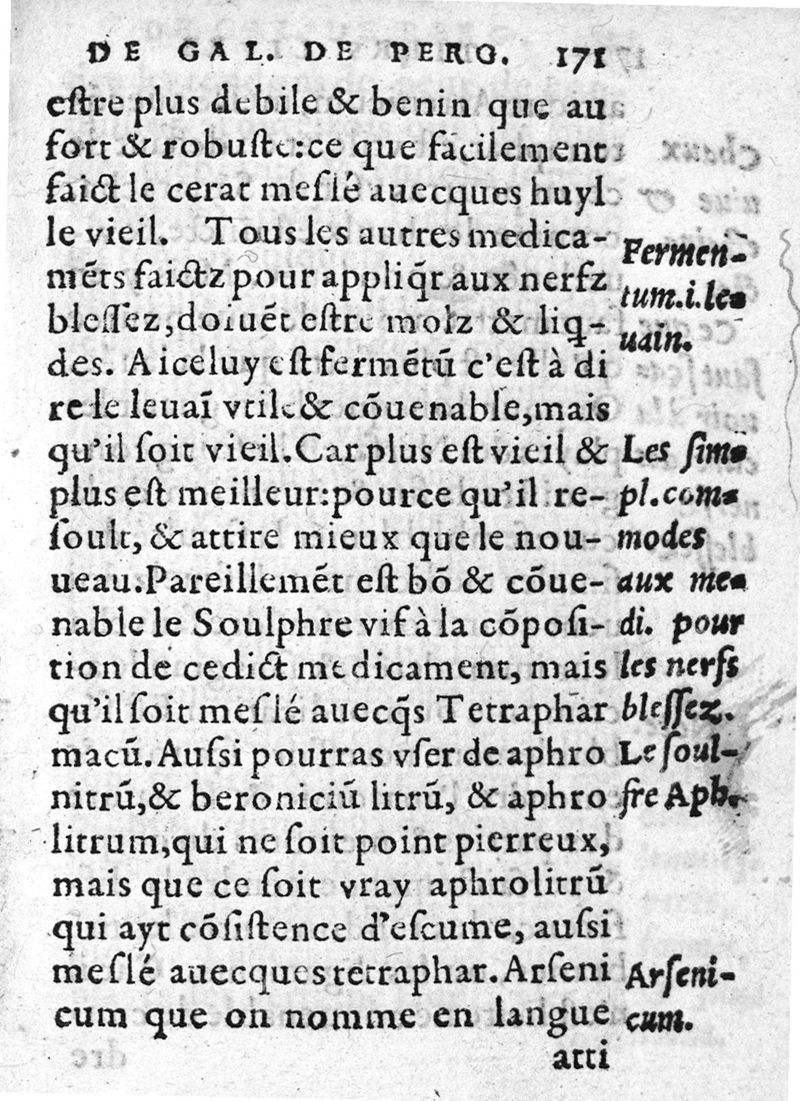 DE GAL. DE PERG. 171
eſtre plus debile & benin que au
fort & robuſte:ce que facilement
faict le cerat meſlé auecques huyl
le vieil. Tous les autres medica-
mẽts faictz pour appliq̃r aux nerfz
bleſſez,doiuẽt eſtre molz & liq-
des. A iceluy eſt fermẽtũ c'eſt à di
re le leuaĩ vtile & cõuenable,mais
qu'il ſoit vieil.Car plus eſt vieil &
plus eſt meilleur:pource qu'il re-
ſoult, & attire mieux que le nou-
ueau.Pareillemẽt eſt bõ & cõue-
nable le Soulphre vif à la cõpoſi-
tion de cedict medicament, mais
qu'il ſoit meſlé auecq̃s Tetraphar
macũ. Auſsi pourras vſer de aphro
nitrũ,& beroniciũ litrũ, & aphro
litrum,qui ne ſoit point pierreux,
mais que ce ſoit vray aphrolitrũ
qui ayt cõſiſtence d'eſcume, auſsi
meſlé auecques tetraphar. Arſeni
cum que on nomme en langue
atti
Fermen-
tum.i.le
uain.
Les ſim
pl.com
modes
aux me
di. pour
les nerfs
bleſſez.
Le ſoul-
fre Aph.
Arſeni-
cum.